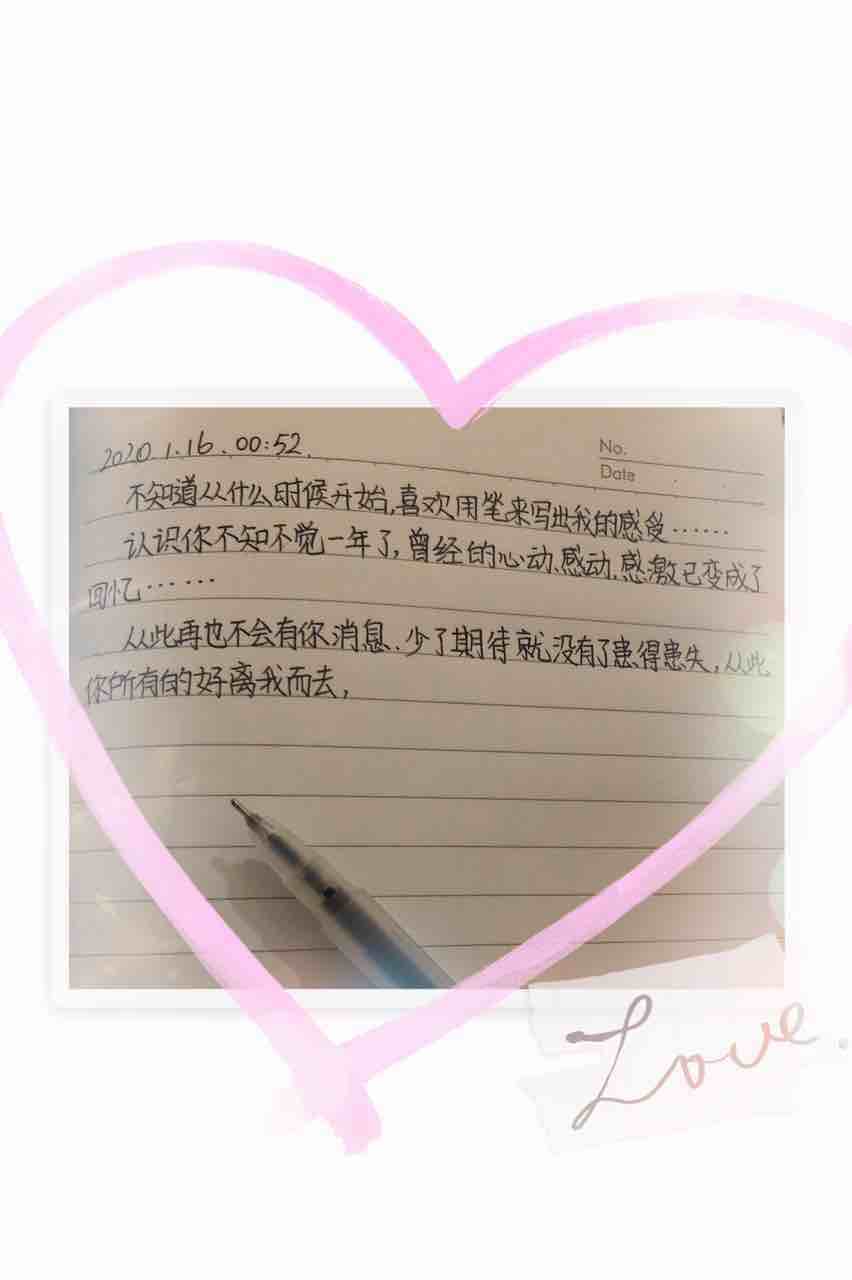 2020.1.16.00:52.
No.
Date
不知道从什么时候开始,喜欢用笔来写出我的感受……
认识你不知不觉一年了,曾经的心动、感动、感激已变成了
回忆……
从此再也不会有你消息、少了期待就没有了患得患失,从此
你所有的好离我而去,
Love.